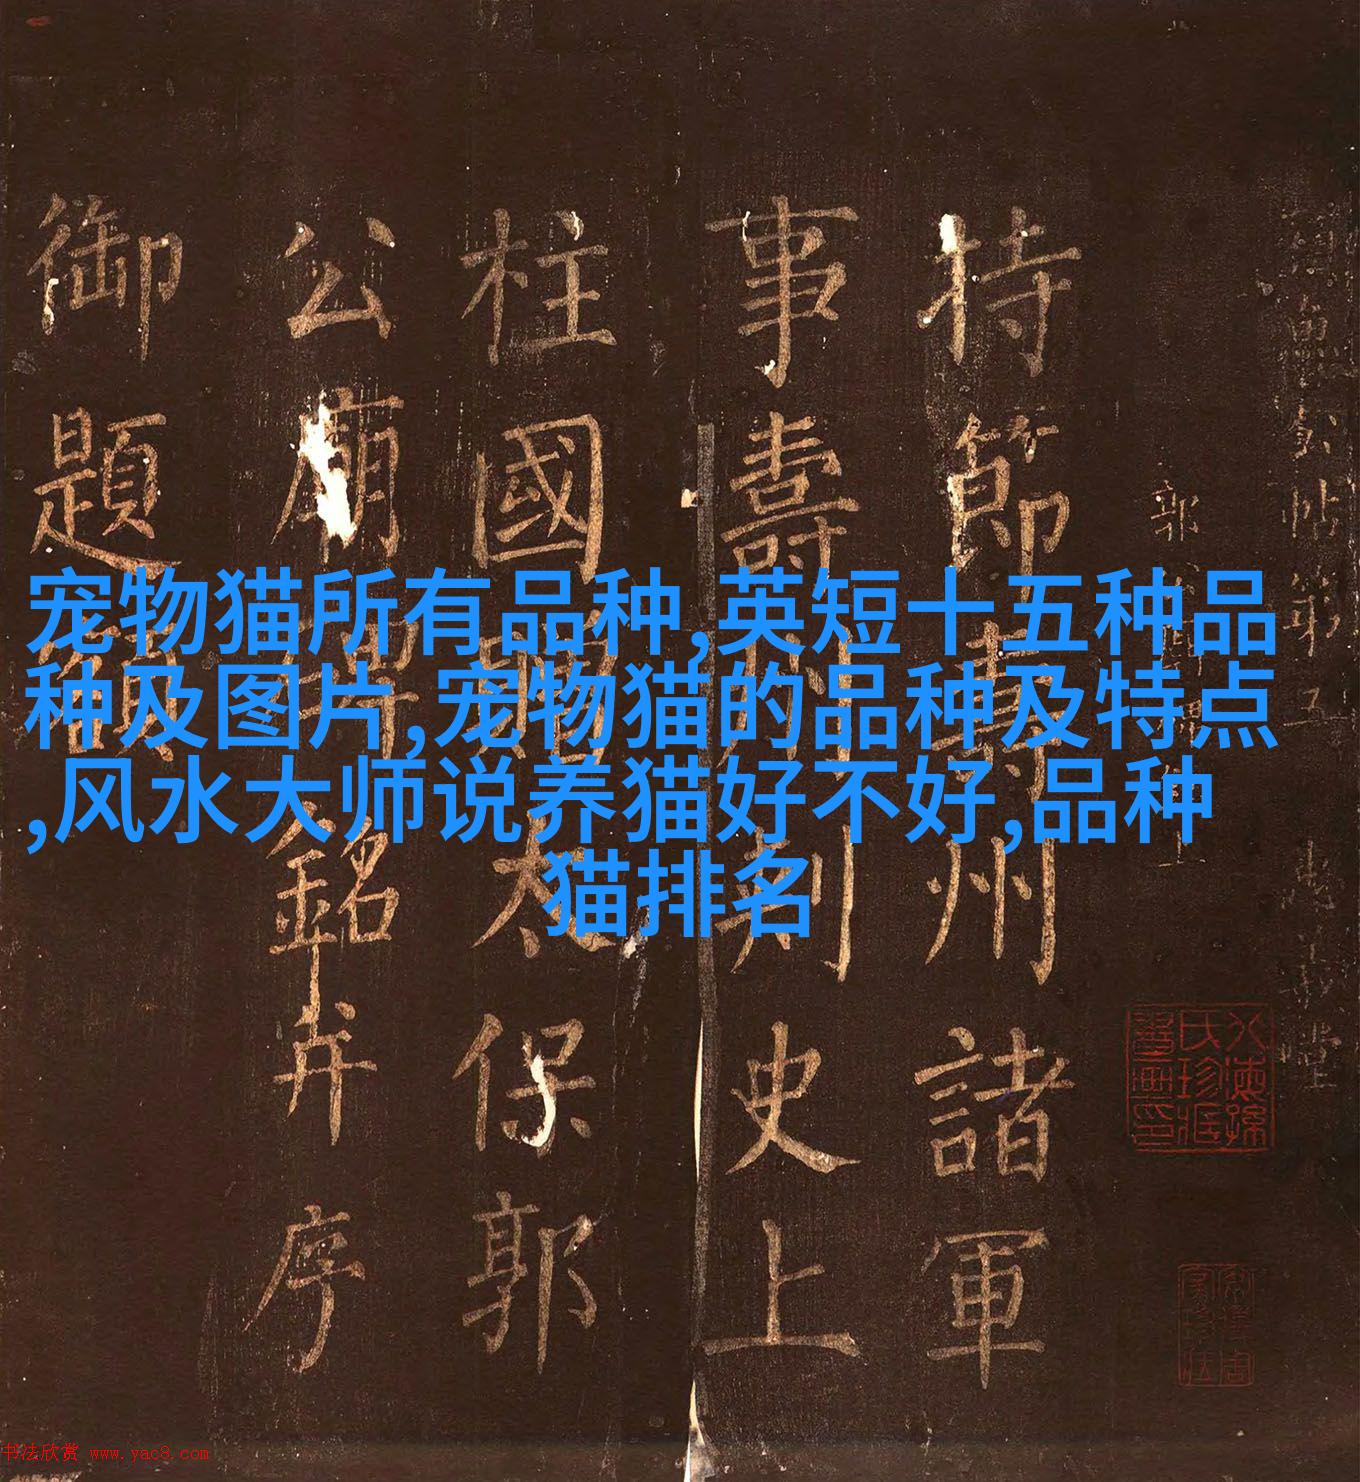 宠物猫所有品种,英短十五种品
种及图片,宠物猫的品种及特点
,风水大师说养猫好不好,品种
猫排名
帖第五 忠義堂
郭
持節壽州諸軍
事壽州刺史上
柱國贈太保郭
公廟碑銘并序
御題額
书法欣赏 www.yac8.com